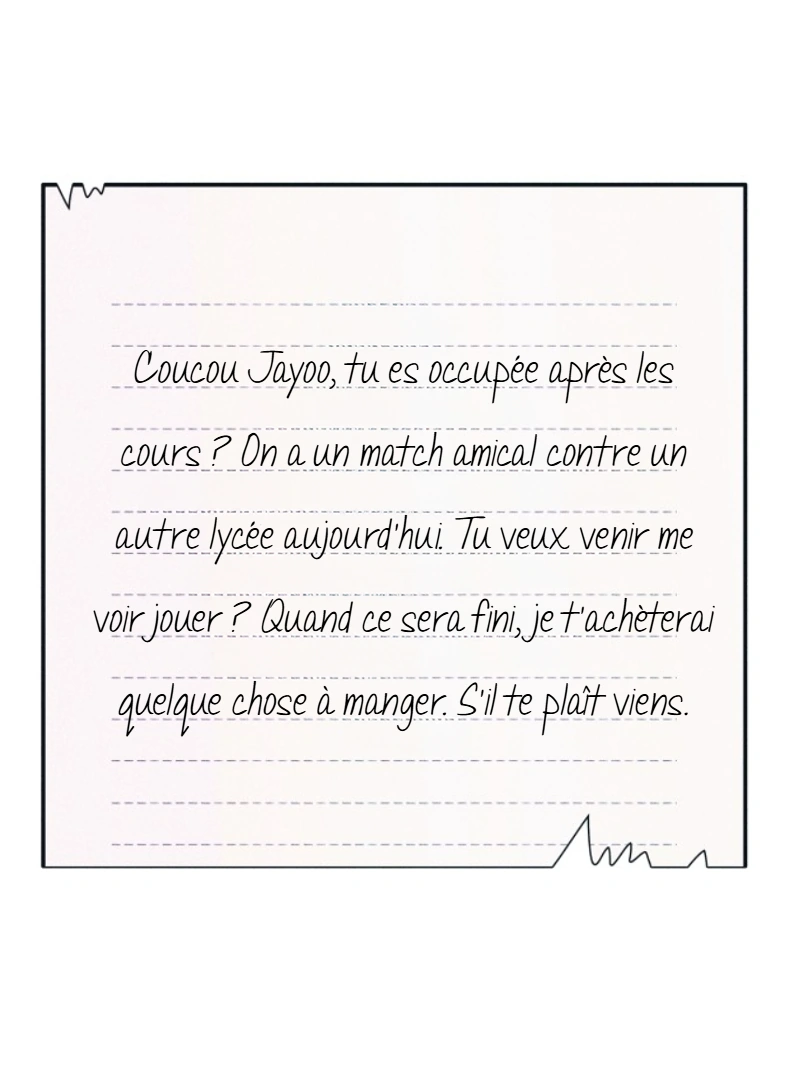 Coucou Jayoo, tu es occupée après les
cours ? On a un match amical contre un
autre lycée aujourd'hui. Tu veux venir me
voir jouer ? Quand ce sera fini, je t'achèterai
quelque chose à manger. S'il te plaît viens.